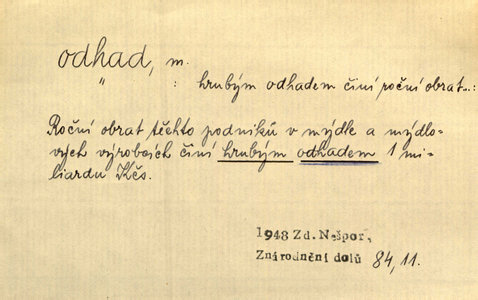 odhad, m.
" : hrubým odhadem činí roční obrat..:
Roční obrat těchto podniků v mýdle a mýdlo-
vých výrobcích činí hrubým odhadem 1 mi-
liardu Kčs.
1948 Zd. Nešpor,
Znárodnění dolů 84, 11.